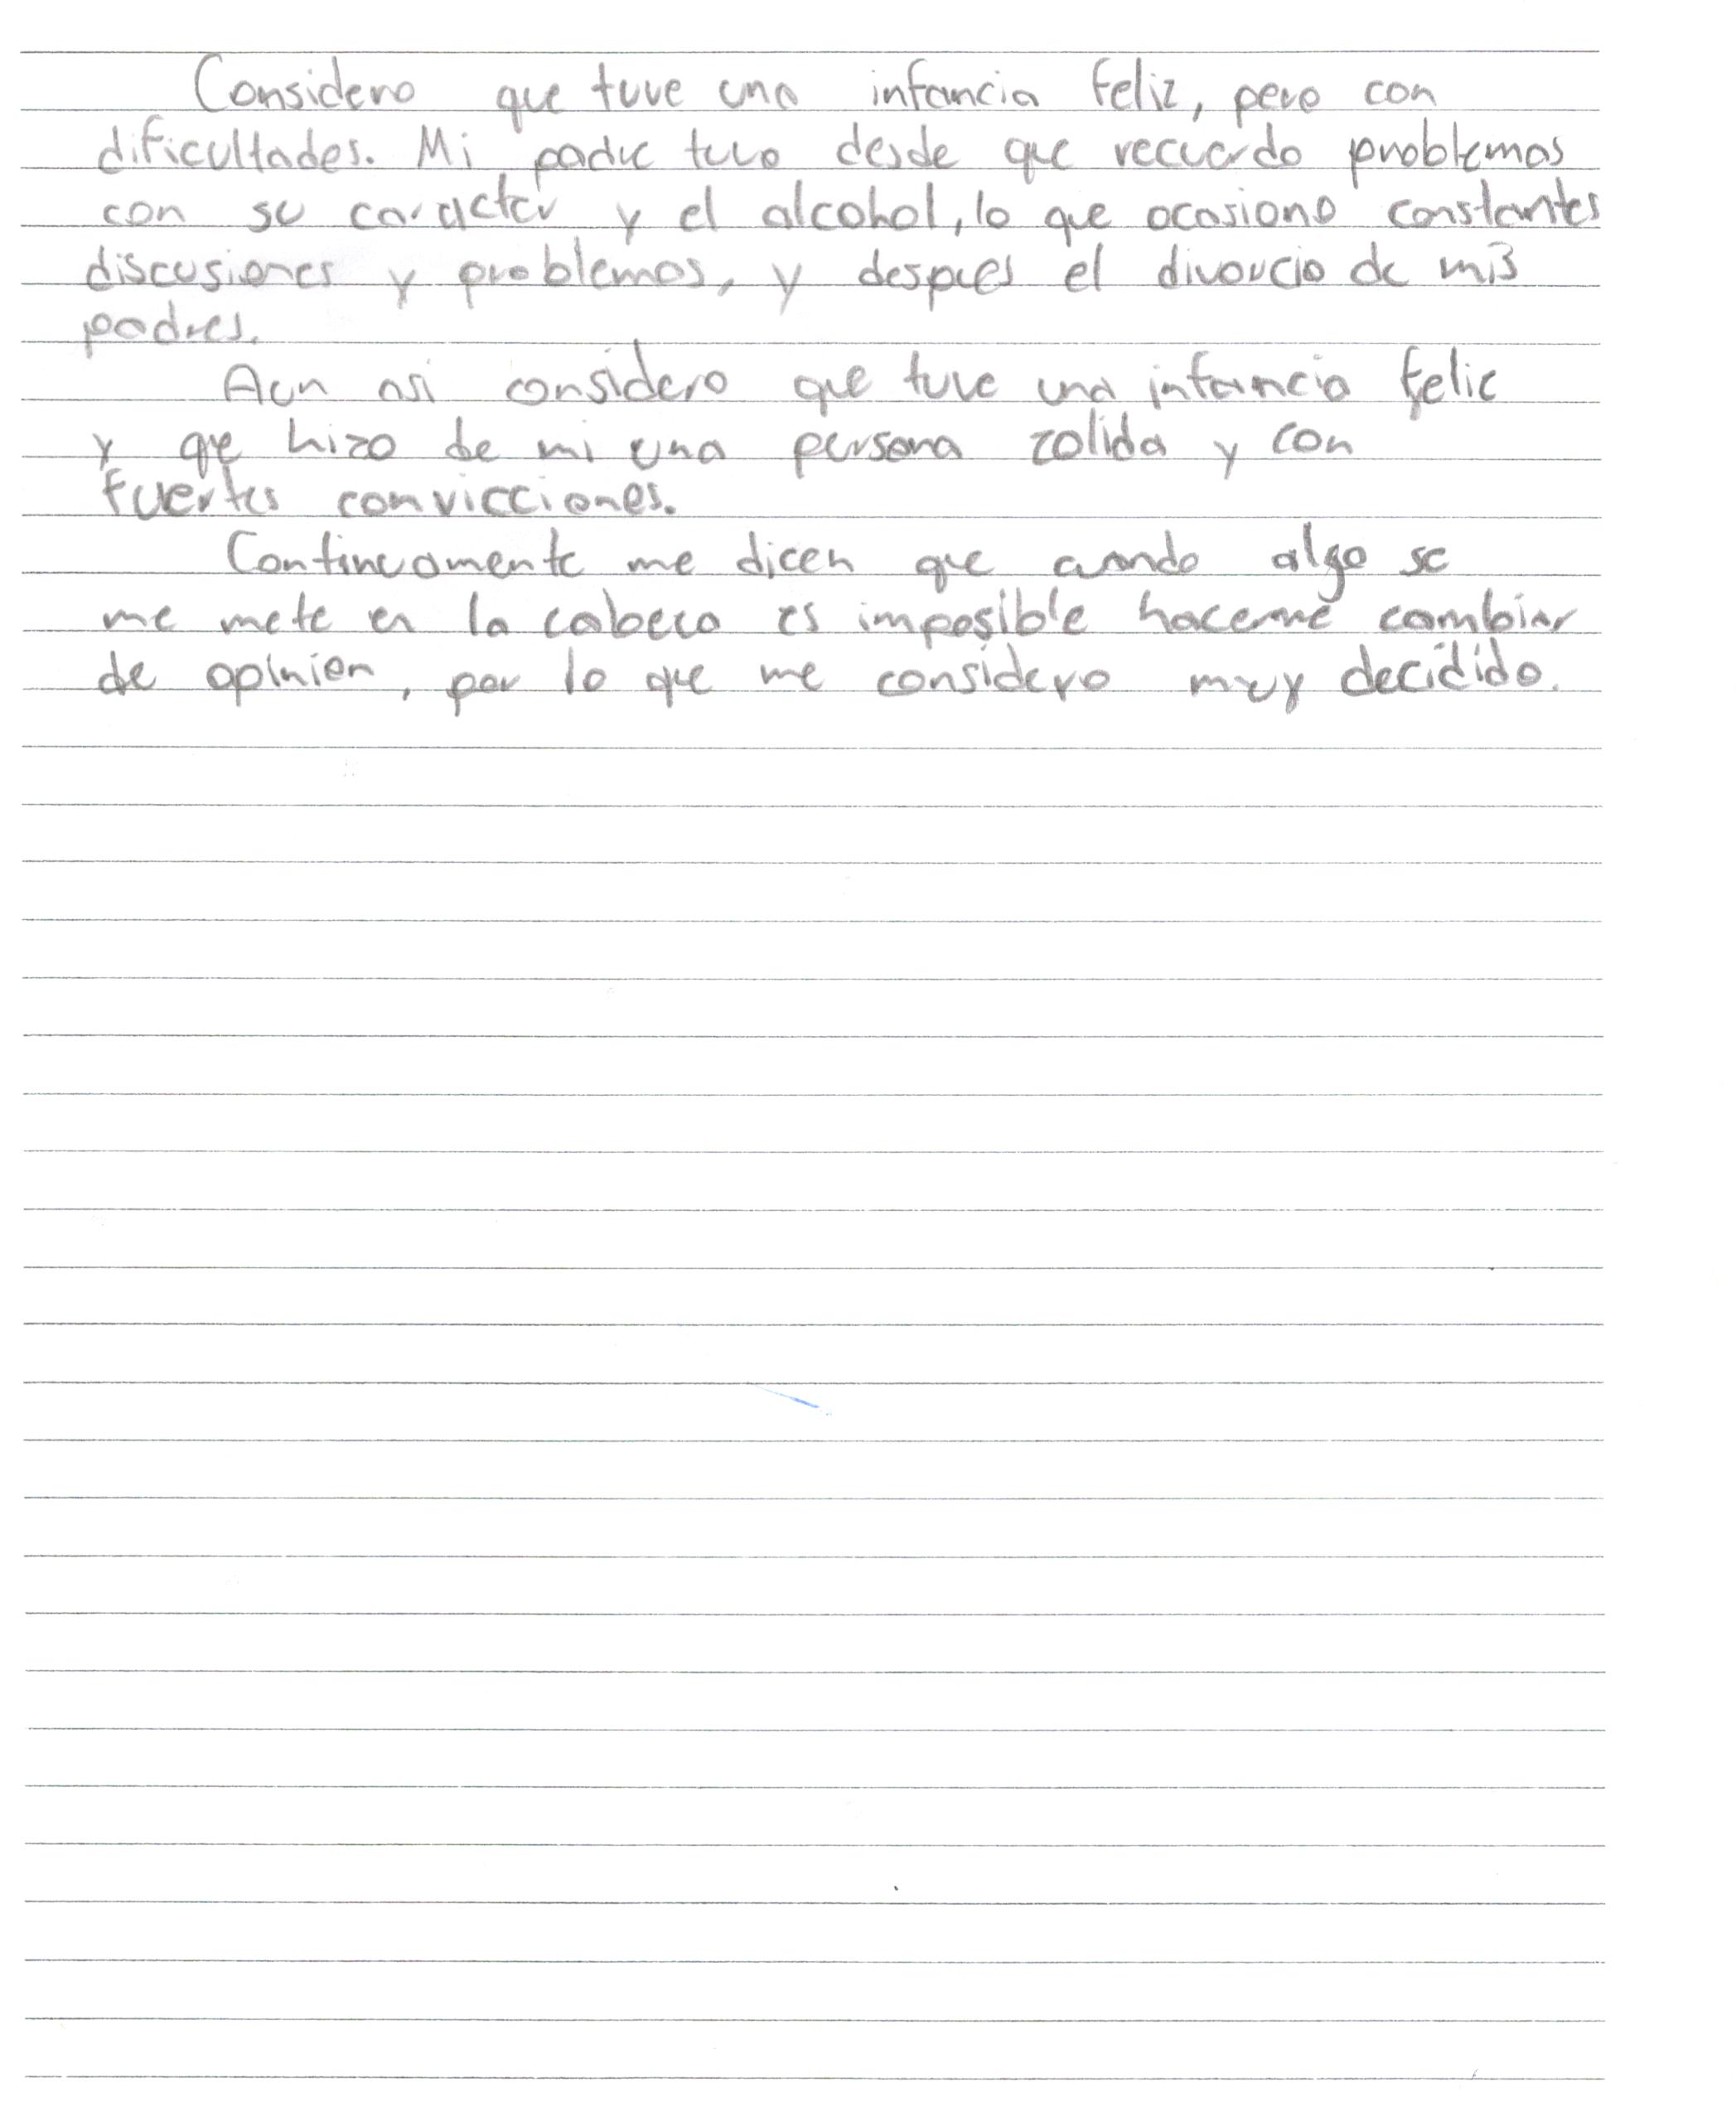 Considero que tuve una infancia feliz, pero con
dificultades. Mi padre tuvo desde que recuerdo problemas
con su caracter y el alcohol, lo que ocasiono constantes
discusiones y problemas, y despues el divorcio de mis
padres.
Aun asi considero que tuve una infancia felic
y que hizo de mi una persona zolida y con
fuertes convicciones.
Continuamente me dicen que cuando algo se
me mete en la cabeca es imposible hacerme cambiar
de opinion, por lo que me considero muy decidido.